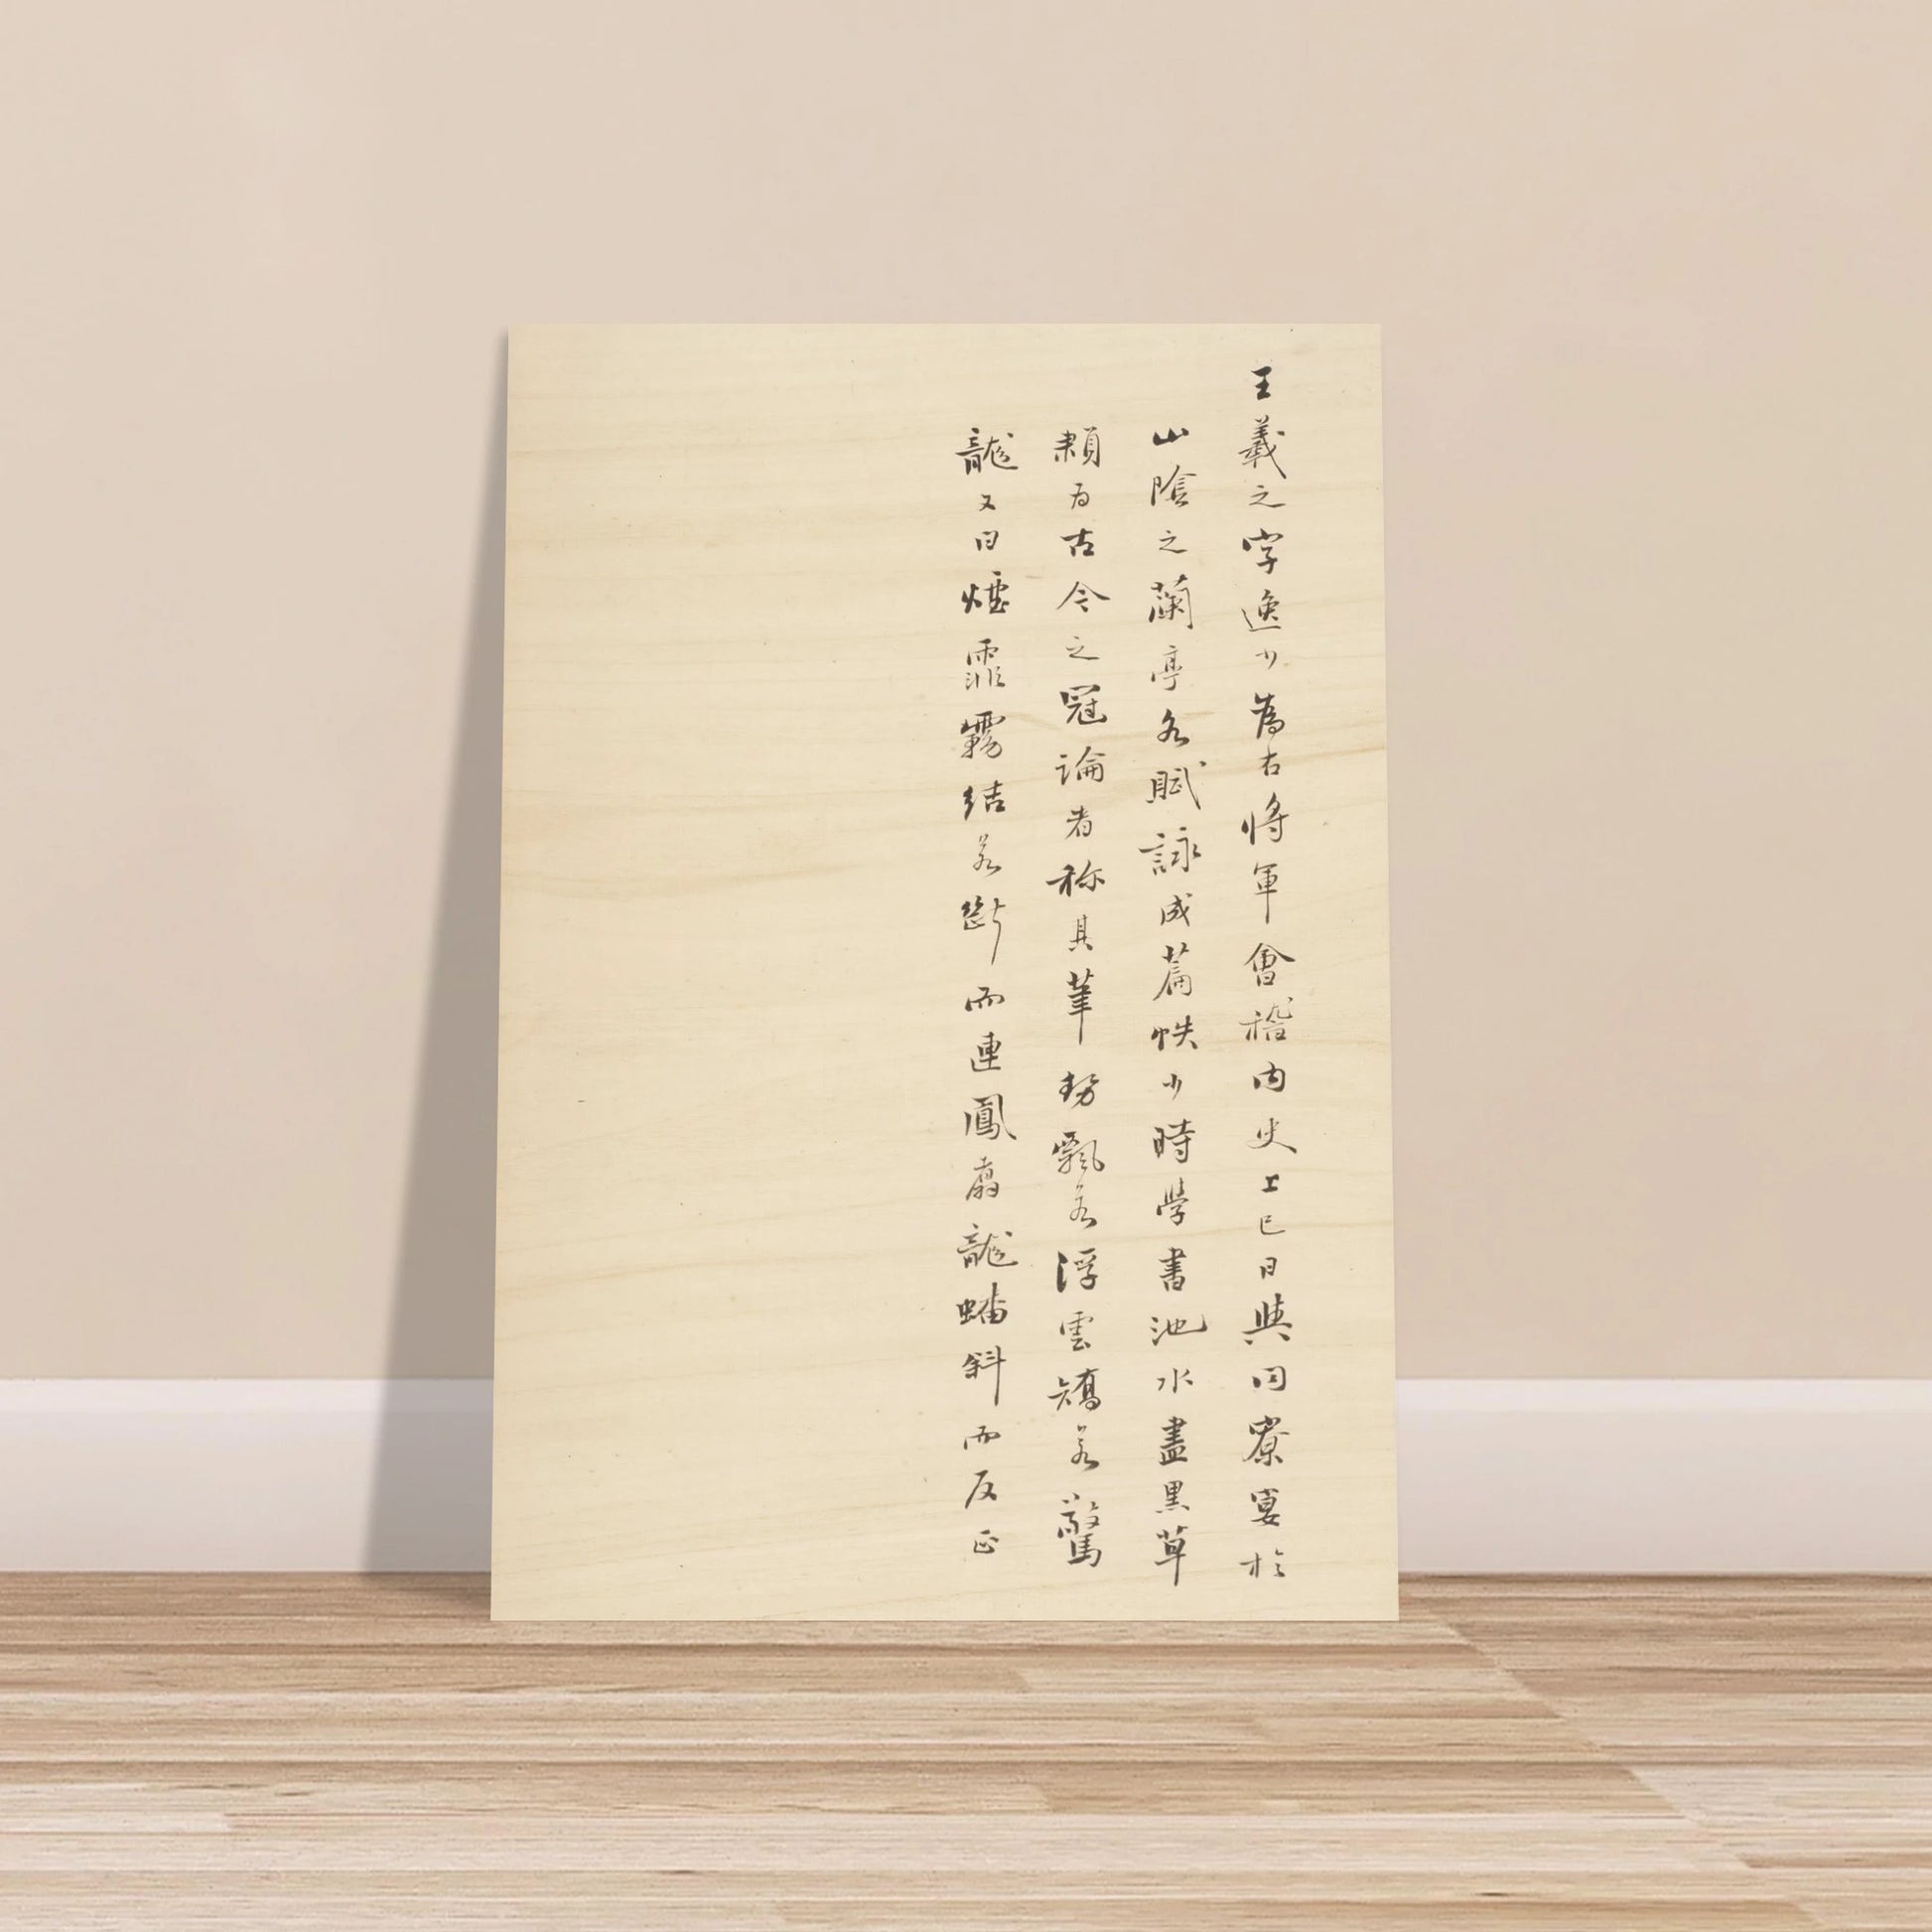 王羲之字逸少為右将軍會稽内史上巳日與同寮宴於
山陰之蘭亭各賦詠成篇帙少時學書池水盡黑草
隸为古今之冠論者称其筆勢飄若浮雲矯若驚
龍又曰煙霏霧結若斷而連鳳翥龍蟠斜而反正